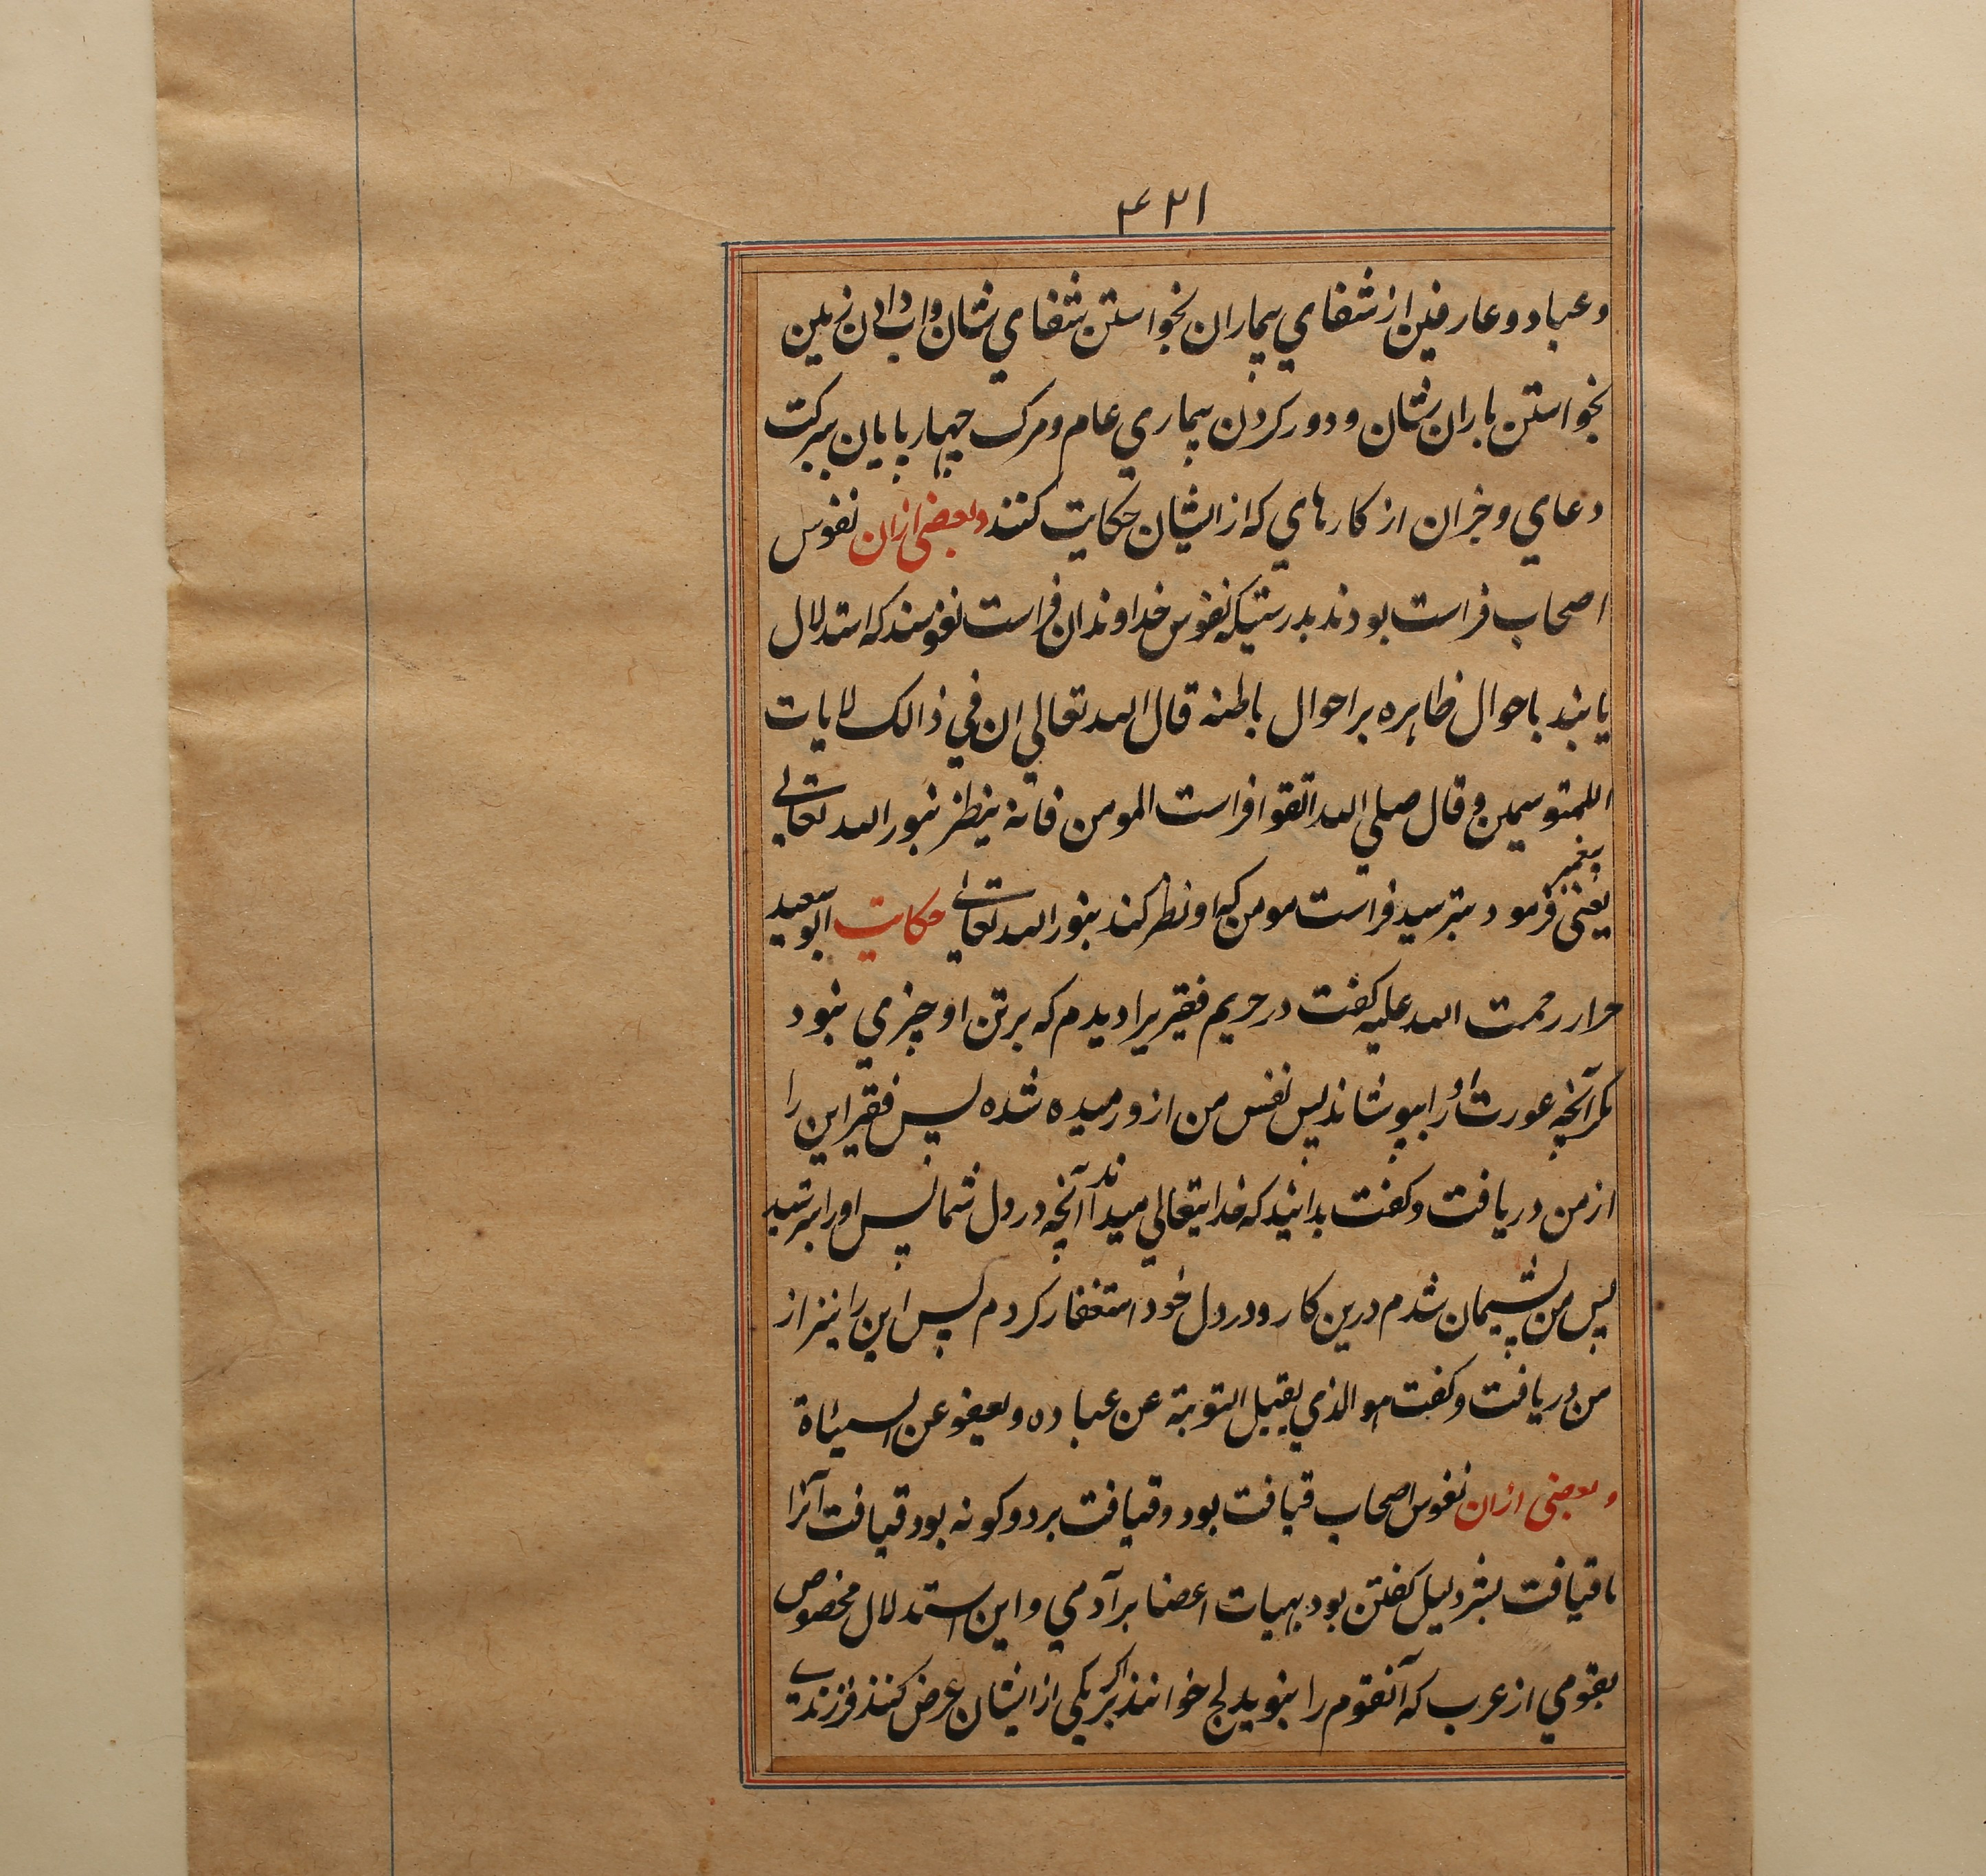 ۴۲۱
و عباد و عارفین از شفاي بیماران بخواستن شفاي شان و اب دادن زمین
بخواستن باران شان و دور کردن بیماري عام و مرک چهار پایان ببرکت
دعاي و جزان از کارهاي که از ایشان حکایت کنند و بعضی ازان نفوس
اصحاب فراست بودند بدرستیکه نفوس خداوندان فراست نفوسند که استدلال
یابند باحوال ظاهره بر احوال باطنه قال الله تعالي ان في ذالک لایات
اللمتوسمین و قال صلي الله اتقوا فراست المومن فانه ینظر بنور الله تعالی
یعنی پیغمبر فرمود بترسید فراست مومن که او نظر کند بنور الله تعالی حکایت ابوسعید
حرار رحمت الله علیه کفت در حریم فقیریرا دیدم که بر تن او چیزي نبود
مکر آنچه عورت او را بپوشاند پس نفس من ازو رمیده شده پس فقیر این را
از من دریافت و کفت بدانید که خدایتعالي میداند آنچه در دل شما پس او را بترسید
پس من پشیمان شدم درین کار و در دل خود استغفار کردم پس این را نیز از
من دریافت و کفت هو الذي یقبل التوبة عن عباده و یعفو عن السیئاة
و بعضی ازان نفوس اصحاب قیافت بود و قیافت بر دو کونه بود قیافت آنرا
ما قیافت بشر دلیل کفتن بود بهیات اعضا بر آدمي و این استدلال مخصوص
بقومي از عرب که آنقوم را بنو یدلج خوانند اکر یکي از ایشان عرض کنند فرزندی